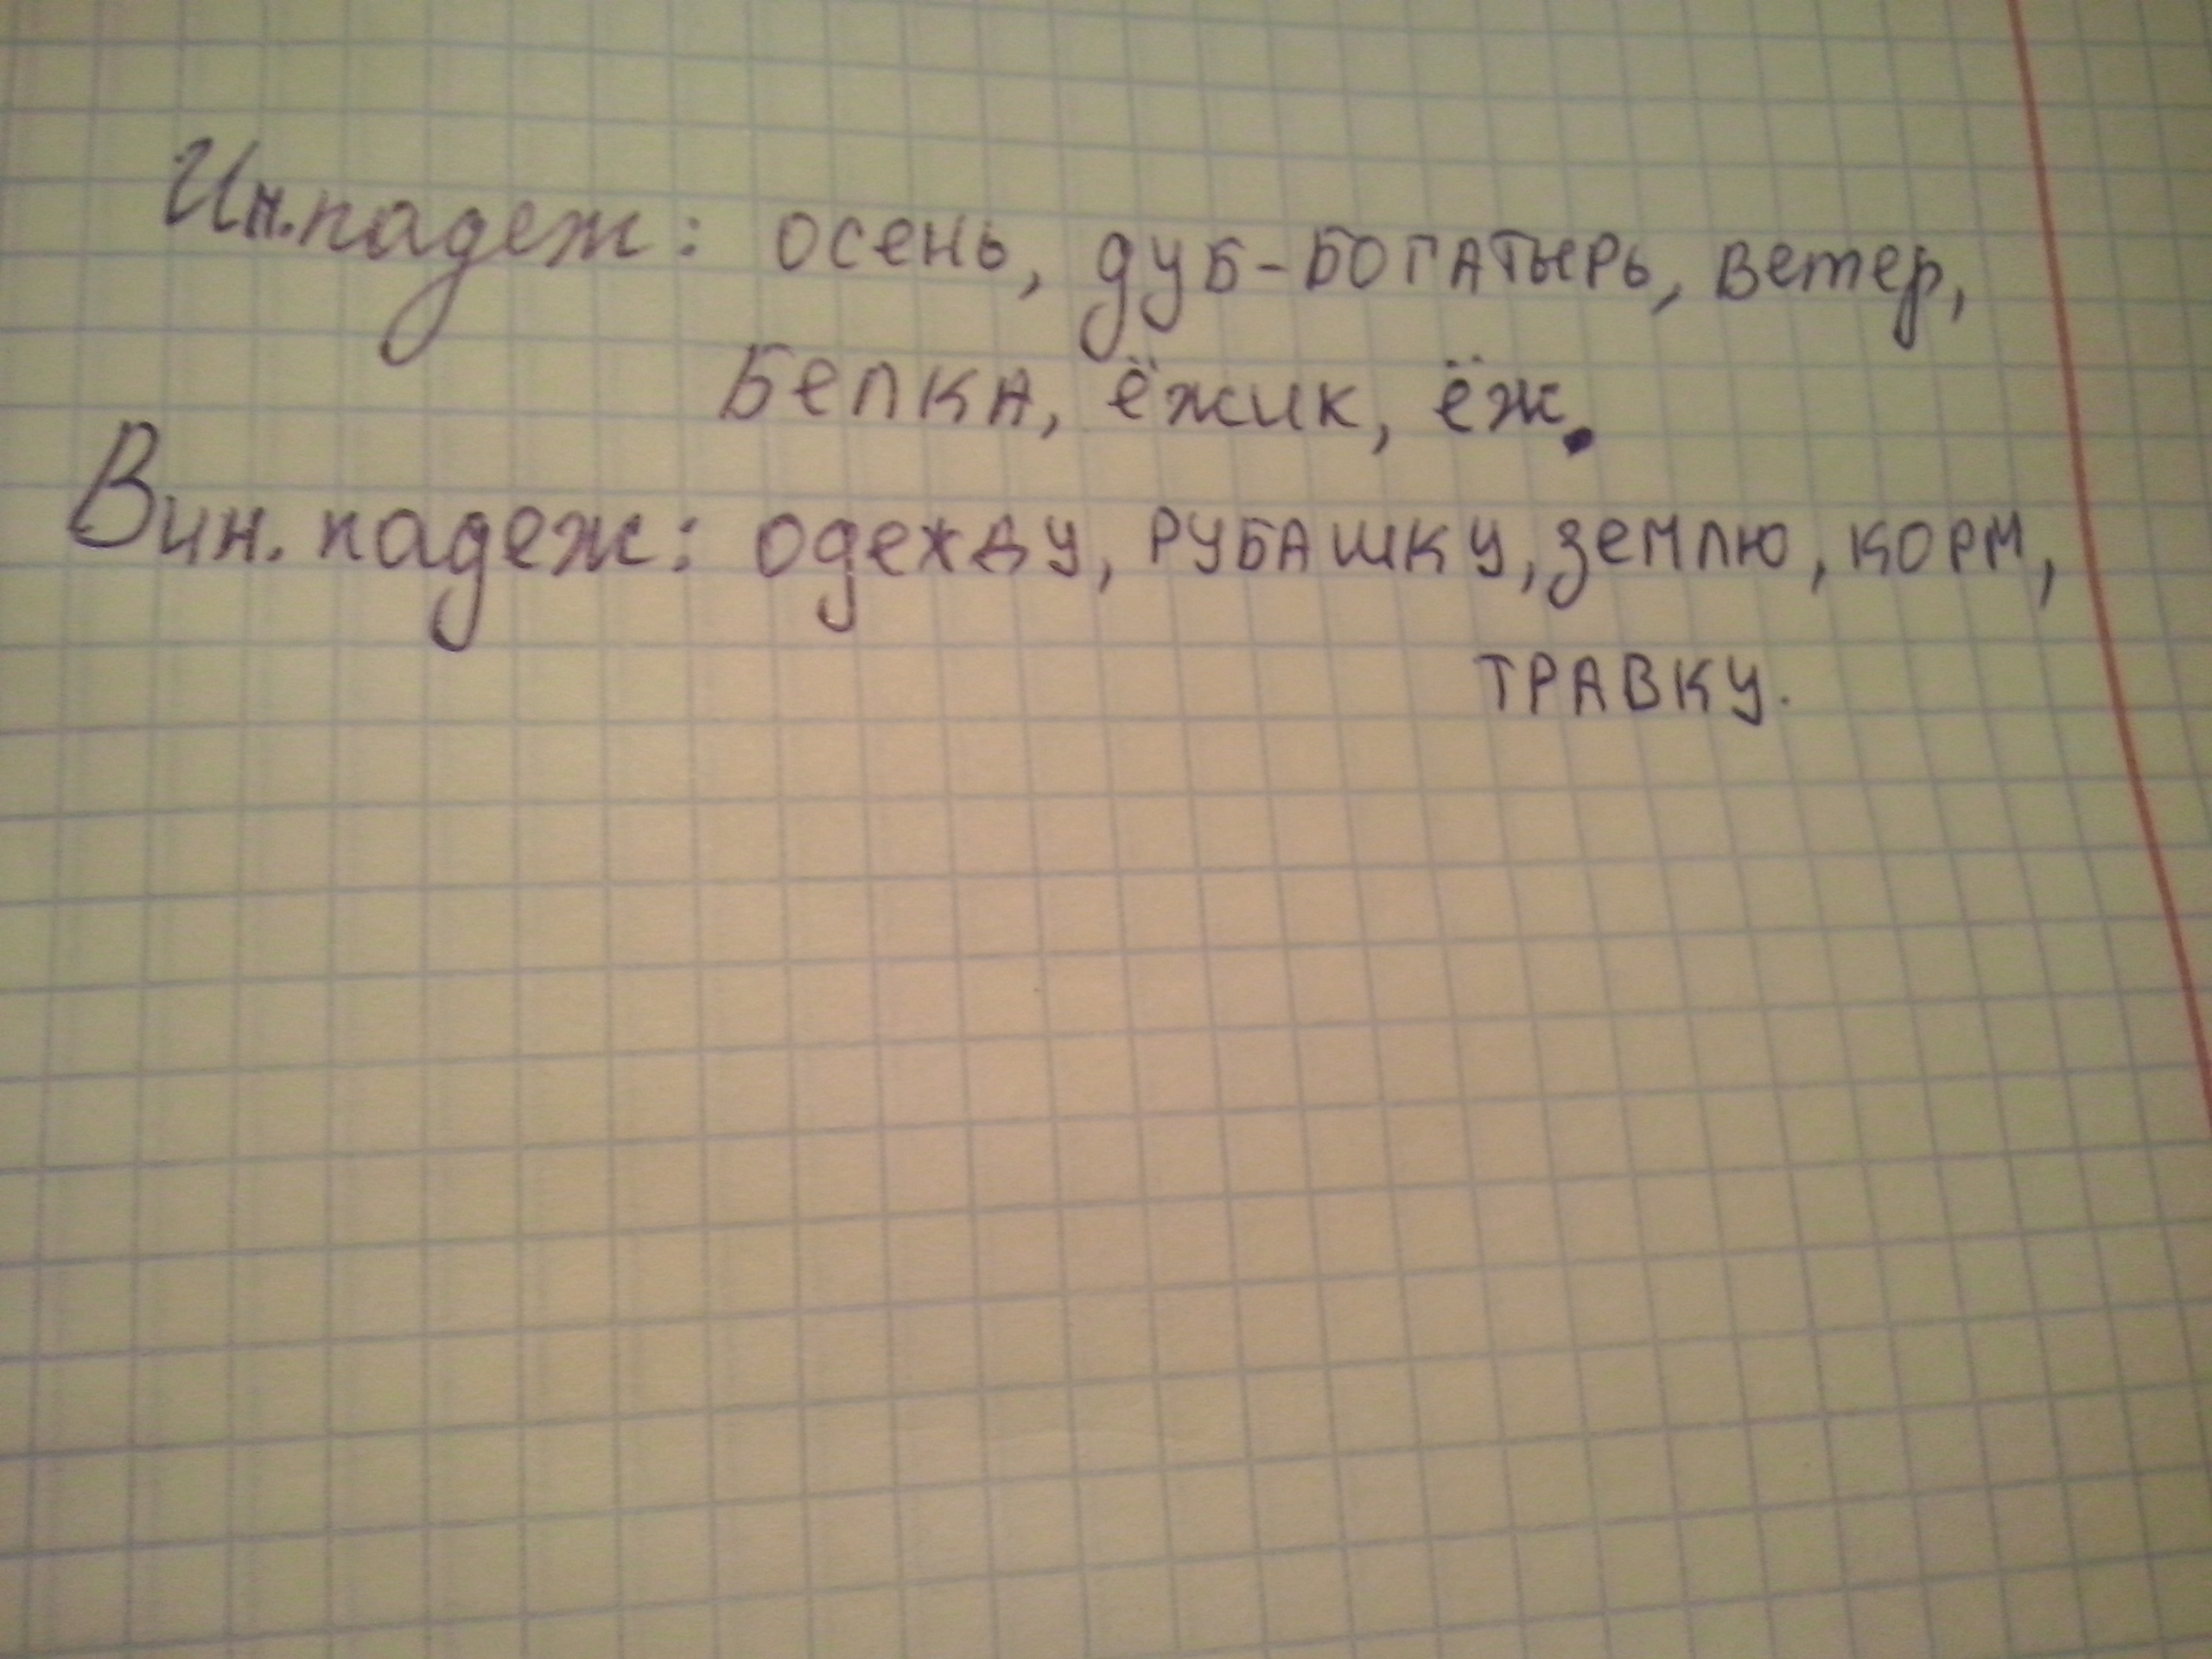 Ин.падеж: осень, дуб-богатырь, ветер,
Белка, ёжик, ёж.
Вин. падеж: одежду, рубашку, землю, корм,
травку.